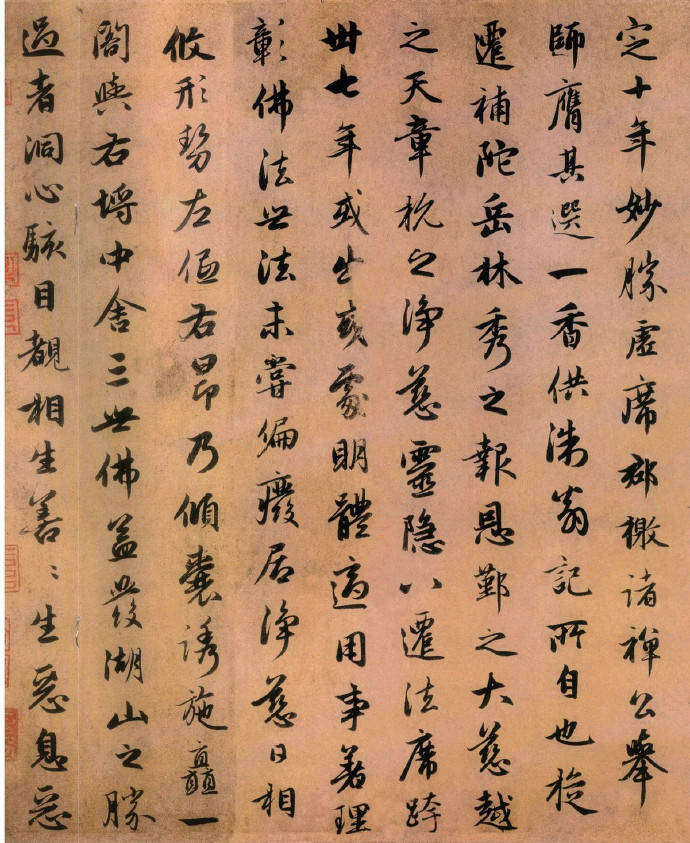 定十年妙勝虛席郡檄諸禪公舉
師膺其選一香供浙翁記所自也旋
遷補陀岳林秀之報恩鄞之大慈越
之天章杭之淨慈靈隱八遷法席跨
卅七年或出或處明體適用事著理
彰佛法世法未嘗偏癈居淨慈日相
攸形勢左低右昂乃傾囊誘施矗一
閣與右埒中舍三世佛蓋發湖山之勝
過者洞心駭目覩相生善〻生惡息惡